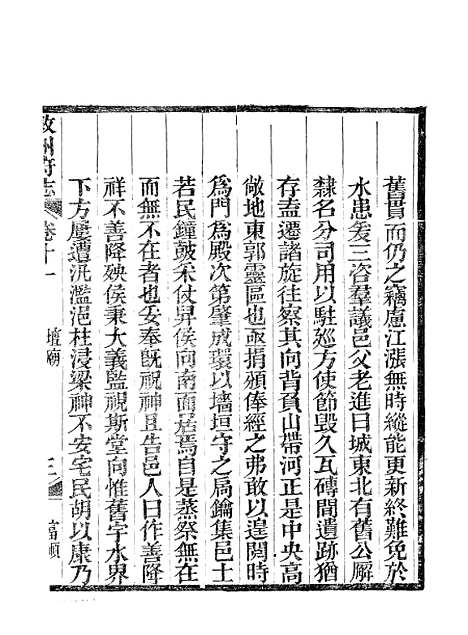 舊冒而仍之竊慮江漲無時縱能更新終難免於
水患爰三咨羣議邑父老進曰城東北有舊公廨
隸名分司用以駐巡方使節毀久瓦磚間遺跡猶
存盍遷諸旋往察其向背負山帶河正是中央高
敞地東郭靈區也亟捐頒俸經之弗敢以遑閱時
爲門爲殿次第肇成環以墻垣守之扃鑰集邑士
若民鐘鼓采仗舁侯向南面居焉自是蒸祭無在
而無不在者也妥奉既祝神且告邑人曰作善降
祥不善降殃侯秉大義監視斯堂向惟舊宇水界
下方屢遭汎濫浥柱浸梁神不安宅民胡以康乃
敘州府志 卷十一 壇廟 三 富順